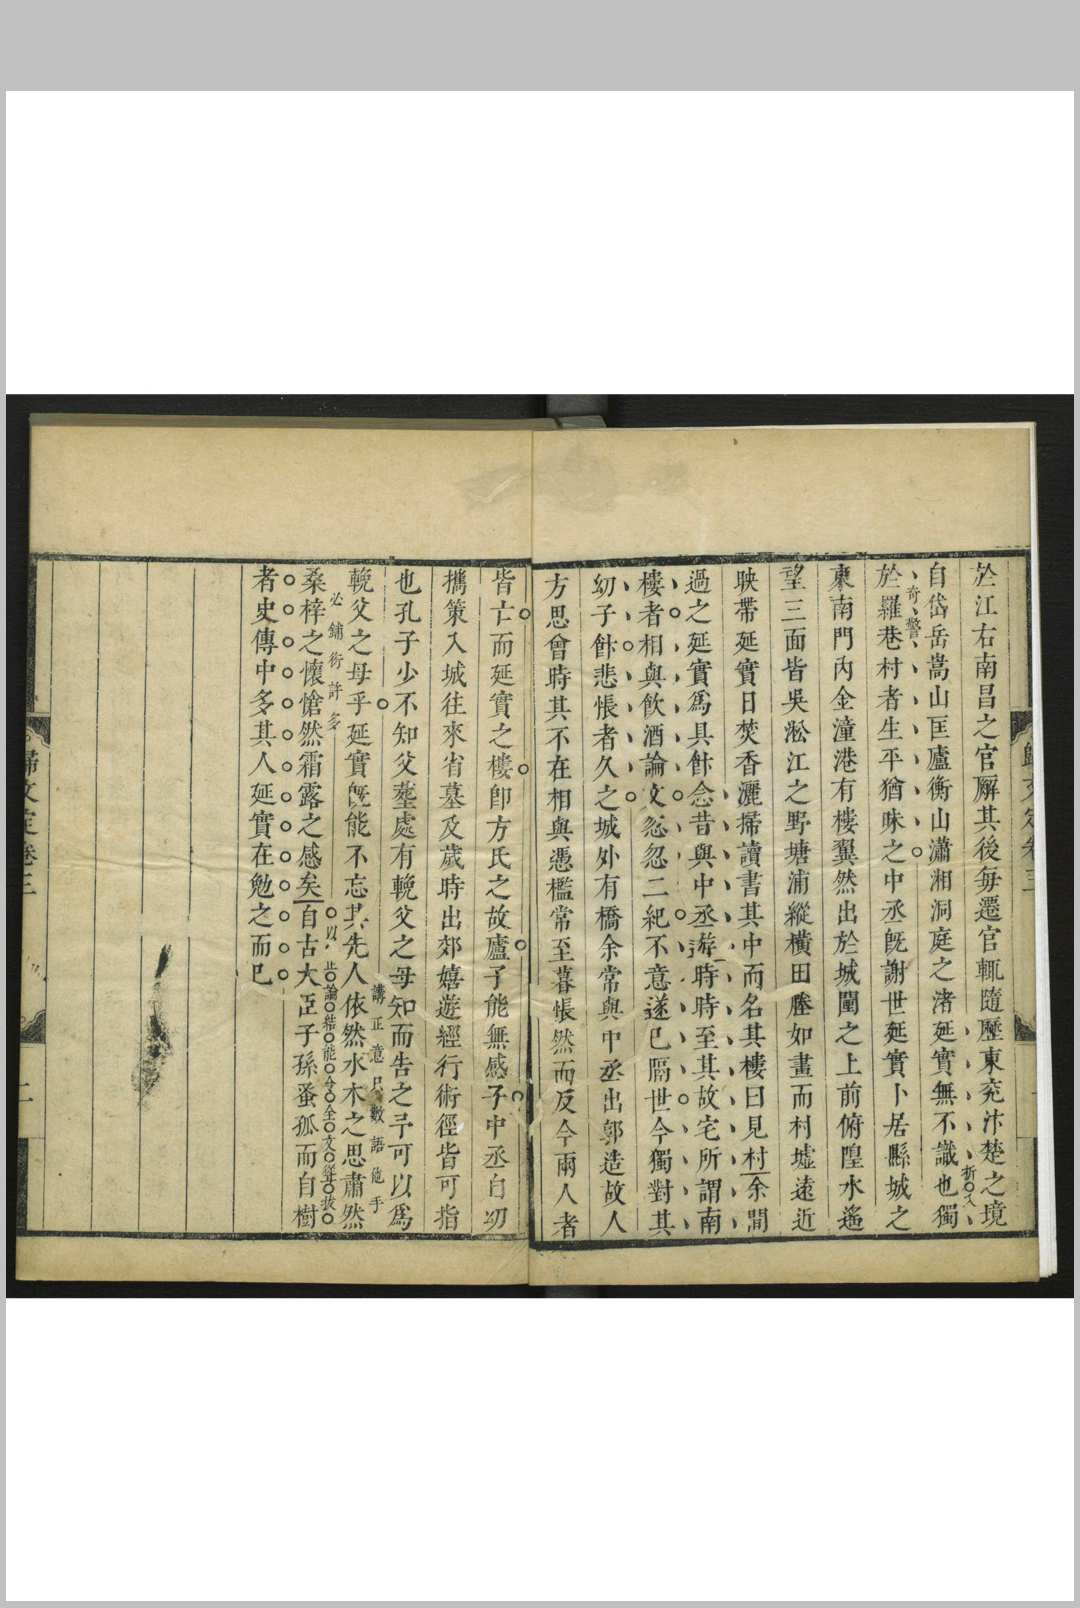 於江右南昌之官廨其後每遷官輒隨歷東兖汴楚之境
自岱岳嵩山匡廬衡山瀟湘洞庭之渚延實無不識也獨
於羅巷村者生平猶昧之中丞旣謝世延實卜居縣城之
東南門內金潼港有樓翼然出於城闉之上前俯隍水遙
望三面皆吳淞江之野塘浦縱橫田塍如畫而村墟遠近
映帶延實日焚香灑掃讀書其中而名其樓曰見村余間
過之延實爲具餠念昔與中丞遊時時至其故宅所謂南
樓者相與飲酒論文忽忽二紀不意遂已隔世今獨對其
幼子餠悲悵者久之城外有橋余常與中丞出郭造故人
方思曾時其不在相與憑檻常至暮悵然而反今兩人者
皆亡而延實之樓卽方氏之故廬予能無感乎中丞自幼
攜策入城往來省墓及歲時出郊嬉遊經行術徑皆可指
也孔子少不知父塟處有輓父之母知而告之予可以爲
輓父之母乎延實旣能不忘其先人依然水木之思肅然
講正意只數語他手
必鋪衍許多
桑梓之懷愴然霜露之感矣自古大臣子孫蚤孤而自樹
者史傳中多其人延實在勉之而已
奇警
歸文定卷三